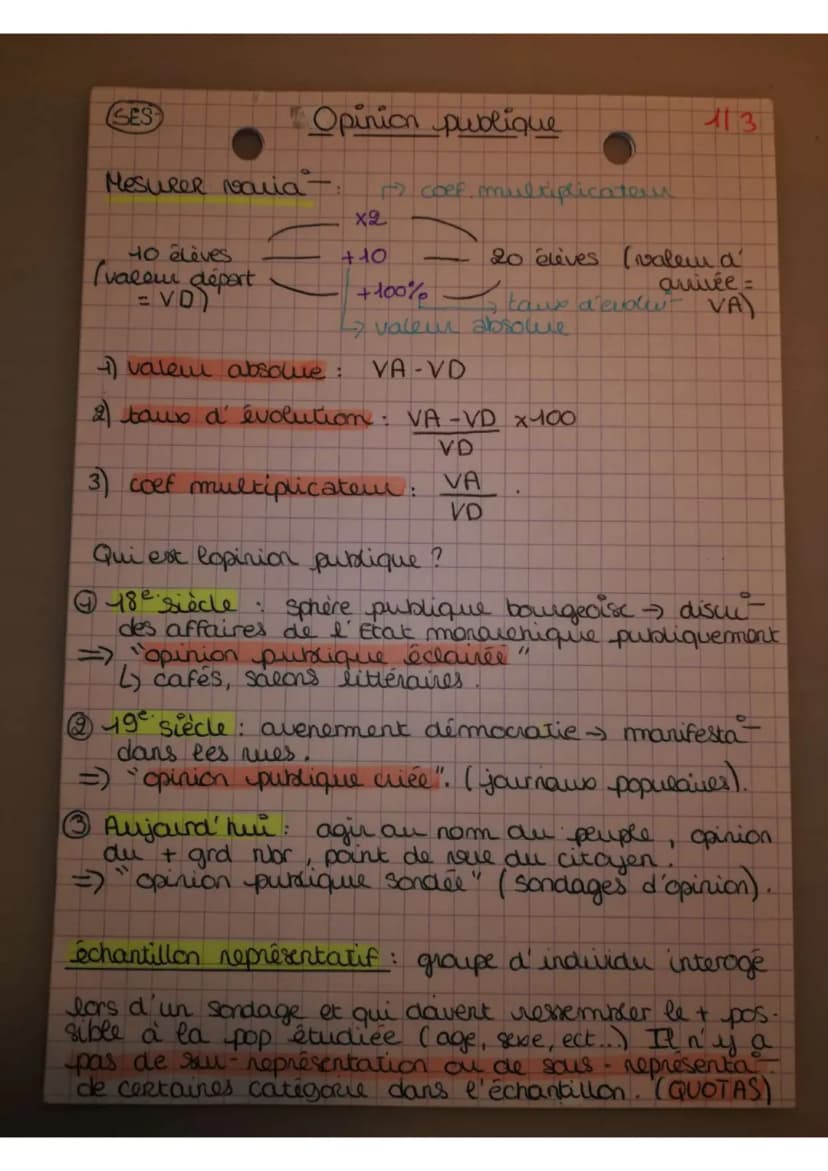 SES
Opinion publique
1/3
Mesurer varia°-:
↳ coef. multiplicateur
x2
10 élèves
+10
20 élèves (valeur d'
(valeur départ
arrivée =
= VD)
+100%
↳ taux d'évolut-
VA)
↳ valeur absolue
1) valeur absolue : VA-VD
2) taux d'évolution : VA-VD x100
VD
3) coef multiplicateur : VA
VD
Qui est l'opinion publique ?
① 18e siècle : sphère publique bourgeoise → discu°-
des affaires de l'Etat monarchique publiquement
=> "opinion publique éclairée"
↳ cafés, salons littéraires.
② 19e siècle : avenement démocratie → manifesta°-
dans les rues.
=> "opinion publique criée". (journaux populaires).
③ Aujourd'hui : agir au nom du peuple, opinion
du + grd nbr, point de vue du citoyen.
=> "opinion publique sondée" (sondages d'opinion).
échantillon représentatif : groupe d'individu interogé
lors d'un sondage et qui doivent ressembler le + pos-
sible à la pop étudiée (age, sexe, ect...) Il n'y a
pas de sur-représentation ou de sous-représenta°-
de certaines catégorie dans l'échantillon. (QUOTAS)